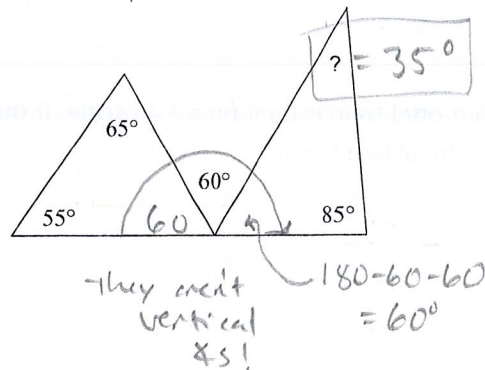 ? = 35°
65°
60°
55°
60
85°
They aren't
vertical
∡s!
180-60-60
= 60°